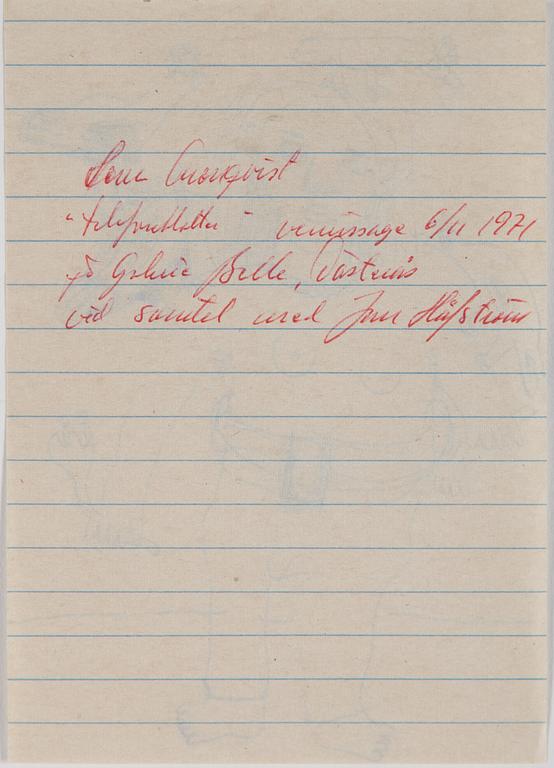 Lena Cronqvist
"telefonklotter" - vernissage 6/11 1971
på Galerie Belle, Västerås
vid samtal med Jan Håfström